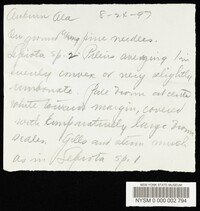 Auburn Ala 8-26-97
On ground among pine needles.
Lepiota sp. 2 Pileus averaging 1 in
evenly convex or very slightly
umbonate. Pale brown at center
white toward margin, covered
with comparatively large brown
scales. Gills and stem much
as in Lepiota sp. 1
NEW YORK STATE MUSEUM
NYSM 0 000 002 794